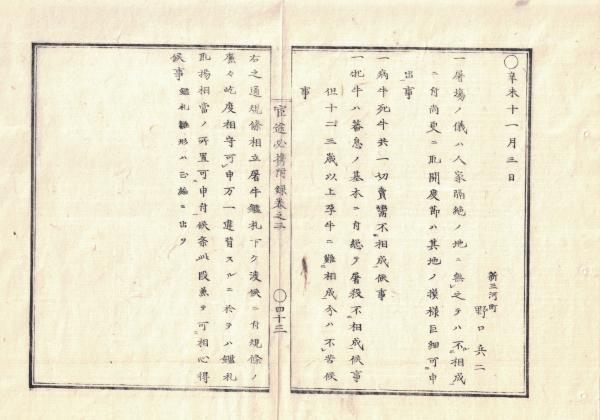 〇辛未十一月三日
新三河町
野口兵二
一屠場ノ儀ハ人家隔絶ノ地ニ無之テハ不相成
ニ付尚更ニ取開度節ハ其地ノ模様巨細可申
出事
一病牛死牛共一切賣鬻不相成候事
一牝牛ハ蕃息ノ基本ニ付總テ屠殺不相成候事
但十二三歳以上孕牛ニ難相成分ハ不苦候
事
官途必携附録巻之三
〇四十三
右之通規條相立屠牛鑑札下ケ渡候ニ付規條ノ
廉々屹度相守可申万一違背スルニ於テハ鑑札
取揚相當ノ所置可申付候条此段兼テ可相心得
候事
鑑札雛形ハ正編ニ出ツ